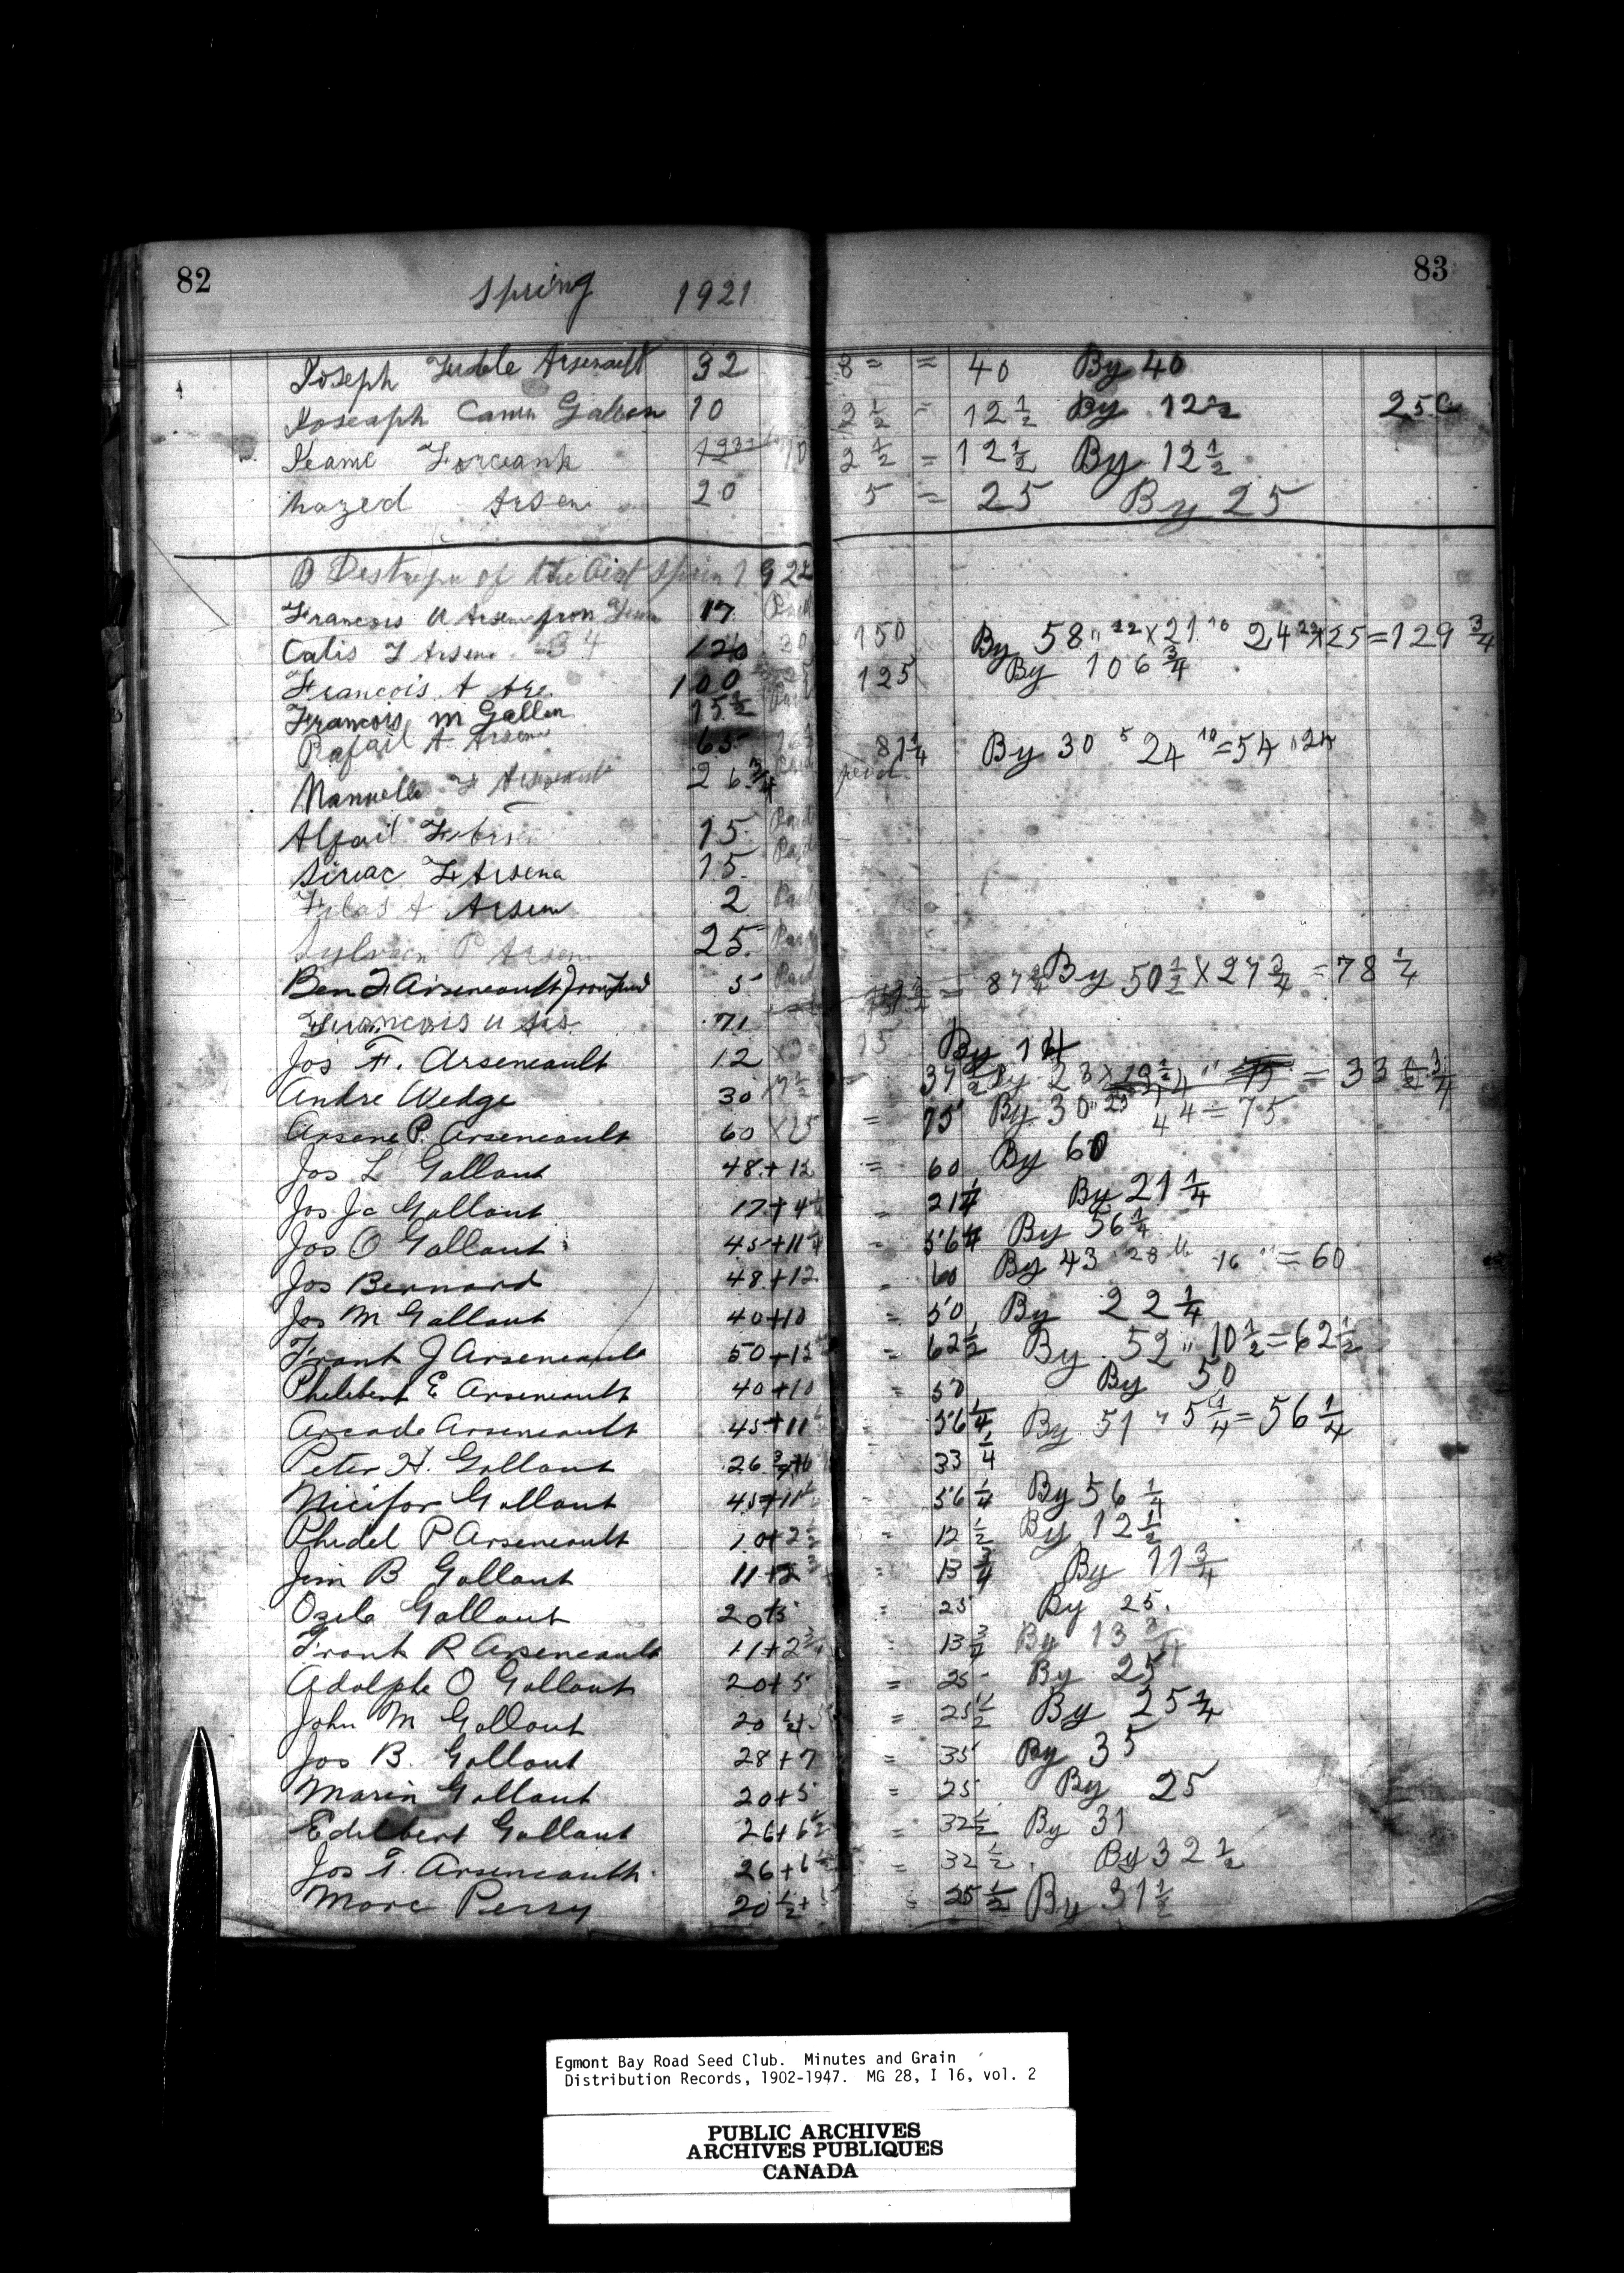 82 Spring 1921 83
Joseph Arsenault 32 8 = = 40 By 40
Joseaph Gallen 10 2 1/2 = 12 1/2 By 12 1/2 25c
10 2 1/2 = 12 1/2 By 12 1/2
Arsen 20 5 = 25 By 25
of the Oat 1922
Francois U Arsen 17 Paid
Calis F Arsene 34 120 30 150 By 58 " 22 X 21 16 24 X 25 = 129 3/4
Francois A Are. 100 25 125 By 106 3/4
Francois M Gallen 15 1/2 Paid
Rafail A Arsene 65 16 1/4 81 1/4 By 30 5 24 10 = 54 " 24
Manuelle F 26 3/4 paid
Alfail F Arsen 15 Paid
Siriac F Arsena 15 Paid
A Arsen 2 Paid
Sylvaen P Arsen 25 Paid
Ben F Arseneault 5 Paid = 87 3/4 By 50 1/2 X 27 3/4 = 78 1/4
Francois U Ars 71
Jos F. Arseneault 12 X 3 15 By 14
Andre Wedge 30 X 7 1/2 37 1/2 By 28 = 33 3/4
Arsene P. Arseneault 60 X 15 = 75 By 30 " 44 = 75
Jos L Gallant 48 + 12 = 60 By 60
Jos Jc Gallant 17 + 4 1/4 = 21 1/4 By 21 1/4
Jos O Gallant 45 + 11 1/4 = 56 1/4 By 56 1/4
Jos Bernard 48 + 12 = 60 By 43 28 16 16 " = 60
Jos M Gallant 40 + 10 = 50 By 22 1/4
Frank J Arseneault 50 + 12 1/2 = 62 1/2 By 52 " 10 1/2 = 62 1/2
Philebert E Arseneault 40 + 10 = 50 By 50
Arcade Arseneault 45 + 11 1/4 = 56 1/4 By 51 " 5 1/4 = 56 1/4
Peter H. Gallant 26 3/4 + 6 33 1/4
Nicifor Gallant 45 + 11 1/4 = 56 1/4 By 56 1/4
Phidel P Arseneault 10 + 2 1/2 = 12 1/2 By 12 1/2
Jim B Gallant 11 + 2 3/4 = 13 3/4 By 11 3/4
Ozile Gallant 20 + 5 = 25 By 25.
Frank R Arseneault 11 + 2 3/4 = 13 3/4 By 13 3/4
Adolphe O Gallant 20 + 5 = 25 By 25
John M Gallant 20 1/2 + 5 = 25 1/2 By 25 1/4
Jos B. Gallant 28 + 7 = 35 By 35
Marin Gallant 20 + 5 = 25 By 25
Edilbert Gallant 26 + 6 1/2 = 32 1/2 By 31
Jos F. Arseneault 26 + 6 1/2 = 32 1/2 By 32 1/2
Marc Perry 20 1/2 + 5 = 25 1/2 By 31 1/2
Egmont Bay Road Seed Club. Minutes and Grain
Distribution Records, 1902-1947. MG 28, I 16, vol. 2
PUBLIC ARCHIVES
ARCHIVES PUBLIQUES
CANADA